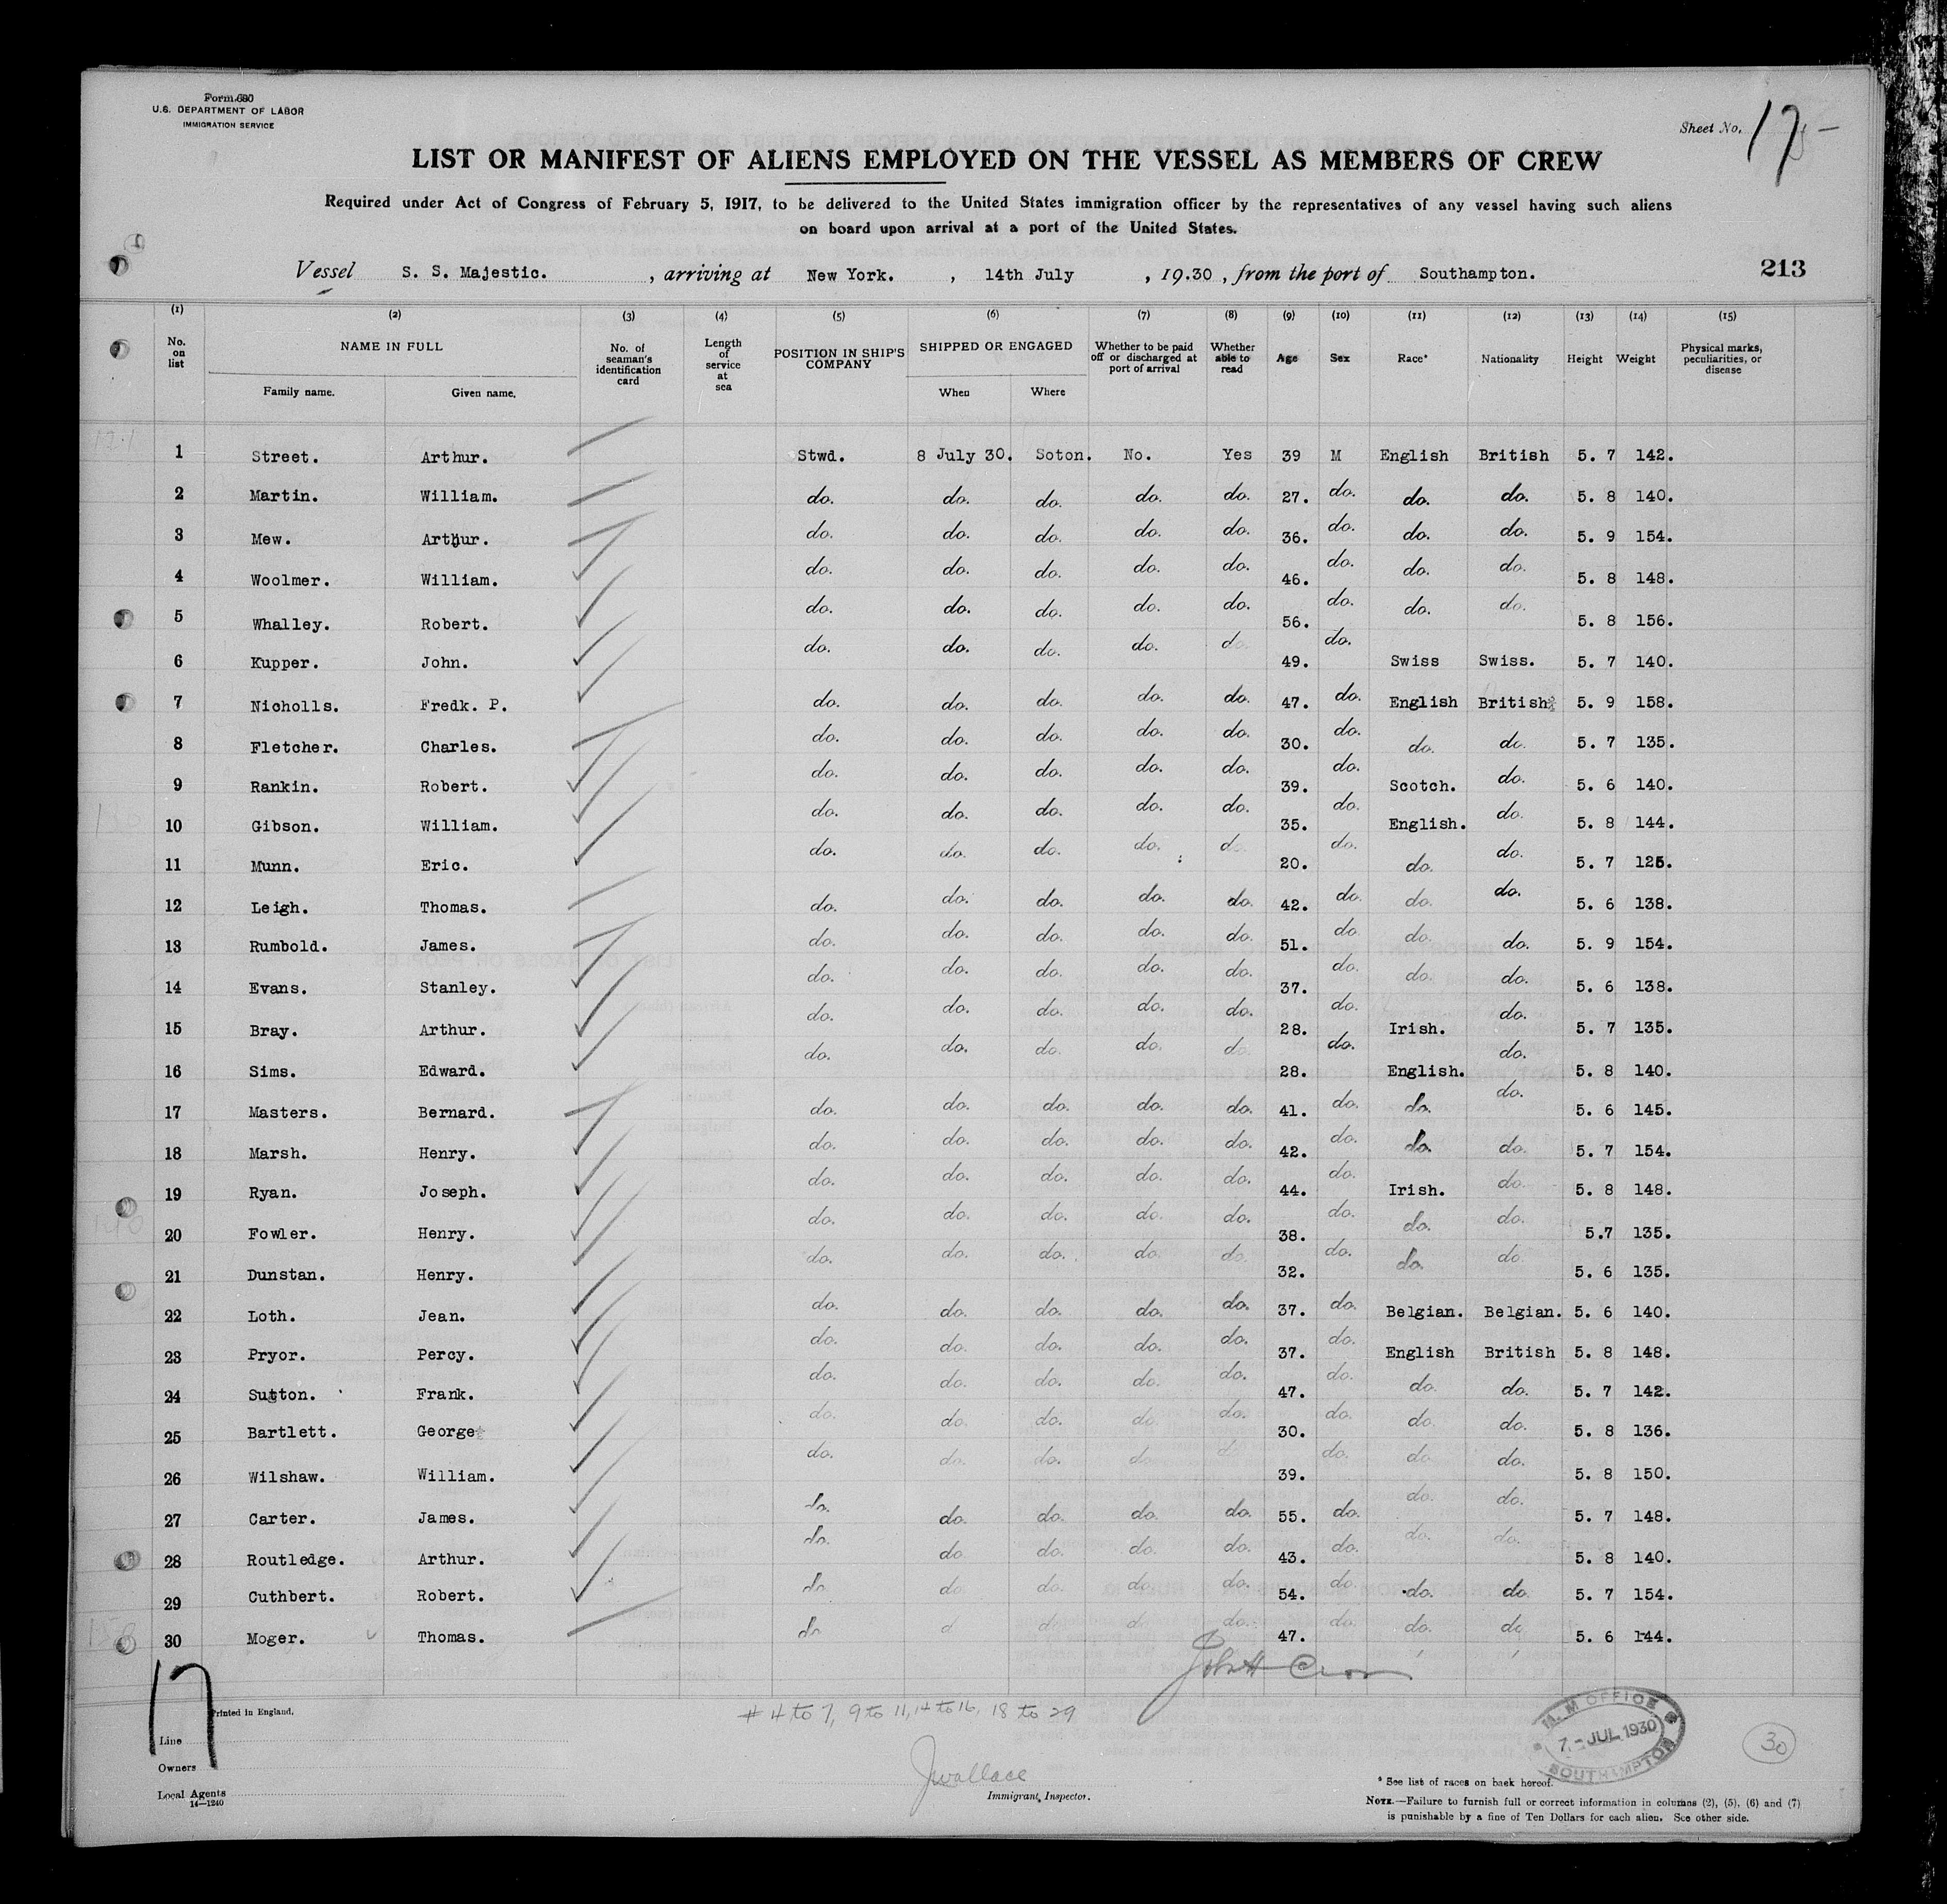 Form 680
U.S. DEPARTMENT OF LABOR
IMMIGRATION SERVICE
Sheet No. 17
LIST OR MANIFEST OF ALIENS EMPLOYED ON THE VESSEL AS MEMBERS OF CREW
Required under Act of Congress of February 5, 1917, to be delivered to the United States immigration officer by the representatives of any vessel having such aliens
on board upon arrival at a port of the United States.
Vessel S. S. Majestic. , arriving at New York. , 14th July , 19.30 , from the port of Southampton. 213
(1) (2) (3) (4) (5) (6) (7) (8) (9) (10) (11) (12) (13) (14) (15)
No. on list NAME IN FULL No. of seaman's identification card Length of service at sea POSITION IN SHIP'S COMPANY SHIPPED OR ENGAGED Whether to be paid off or discharged at port of arrival Whether able to read Age Sex Race* Nationality Height Weight Physical marks, peculiarities, or disease
Family name. Given name. When Where
1 Street. Arthur. Stwd. 8 July 30. Soton. No. Yes 39 M English British 5. 7 142.
2 Martin. William. do. do. do. do. do. 27. do. do. do. 5. 8 140.
3 Mew. Arthur. do. do. do. do. do. 36. do. do. do. 5. 9 154.
4 Woolmer. William. do. do. do. do. do. 46. do. do. do. 5. 8 148.
5 Whalley. Robert. do. do. do. do. do. 56. do. do. do. 5. 8 156.
6 Kupper. John. do. do. do. do. do. 49. do. Swiss Swiss. 5. 7 140.
7 Nicholls. Fredk. P. do. do. do. do. do. 47. do. English British 5. 9 158.
8 Fletcher. Charles. do. do. do. do. do. 30. do. do. do. 5. 7 135.
9 Rankin. Robert. do. do. do. do. do. 39. do. Scotch. do. 5. 6 140.
10 Gibson. William. do. do. do. do. do. 35. do. English. do. 5. 8 144.
11 Munn. Eric. do. do. do. do. do. 20. do. do. do. 5. 7 125.
12 Leigh. Thomas. do. do. do. do. do. 42. do. do. do. 5. 6 138.
13 Rumbold. James. do. do. do. do. do. 51. do. do. do. 5. 9 154.
14 Evans. Stanley. do. do. do. do. do. 37. do. do. do. 5. 6 138.
15 Bray. Arthur. do. do. do. do. do. 28. do. Irish. do. 5. 7 135.
16 Sims. Edward. do. do. do. do. do. 28. do. English. do. 5. 8 140.
17 Masters. Bernard. do. do. do. do. do. 41. do. do. do. 5. 6 145.
18 Marsh. Henry. do. do. do. do. do. 42. do. do. do. 5. 7 154.
19 Ryan. Joseph. do. do. do. do. do. 44. do. Irish. do. 5. 8 148.
20 Fowler. Henry. do. do. do. do. do. 38. do. do. do. 5.7 135.
21 Dunstan. Henry. do. do. do. do. do. 32. do. do. do. 5. 6 135.
22 Loth. Jean. do. do. do. do. do. 37. do. Belgian. Belgian. 5. 6 140.
23 Pryor. Percy. do. do. do. do. do. 37. do. English British 5. 8 148.
24 Sutton. Frank. do. do. do. do. do. 47. do. do. do. 5. 7 142.
25 Bartlett. George do. do. do. do. do. 30. do. do. do. 5. 8 136.
26 Wilshaw. William. do. do. do. do. do. 39. do. do. do. 5. 8 150.
27 Carter. James. do. do. do. do. do. 55. do. do. do. 5. 7 148.
28 Routledge. Arthur. do. do. do. do. do. 43. do. do. do. 5. 8 140.
29 Cuthbert. Robert. do. do. do. do. do. 54. do. do. do. 5. 7 154.
30 Moger. Thomas. do. d do. do. do. 47. do. do. do 5. 6 144.
17
Printed in England.
# 4 to 7, 9 to 11, 14 to 16, 18 to 29
M. M OFFICE
7 - JUL 1930
SOUTHAMPTON
30
Line
Owners
Local Agents
14—1240
JWallace
Immigrant Inspector.
* See list of races on back hereof.
NOTE.—Failure to furnish full or correct information in columns (2), (5), (6) and (7)
is punishable by a fine of Ten Dollars for each alien. See other side.